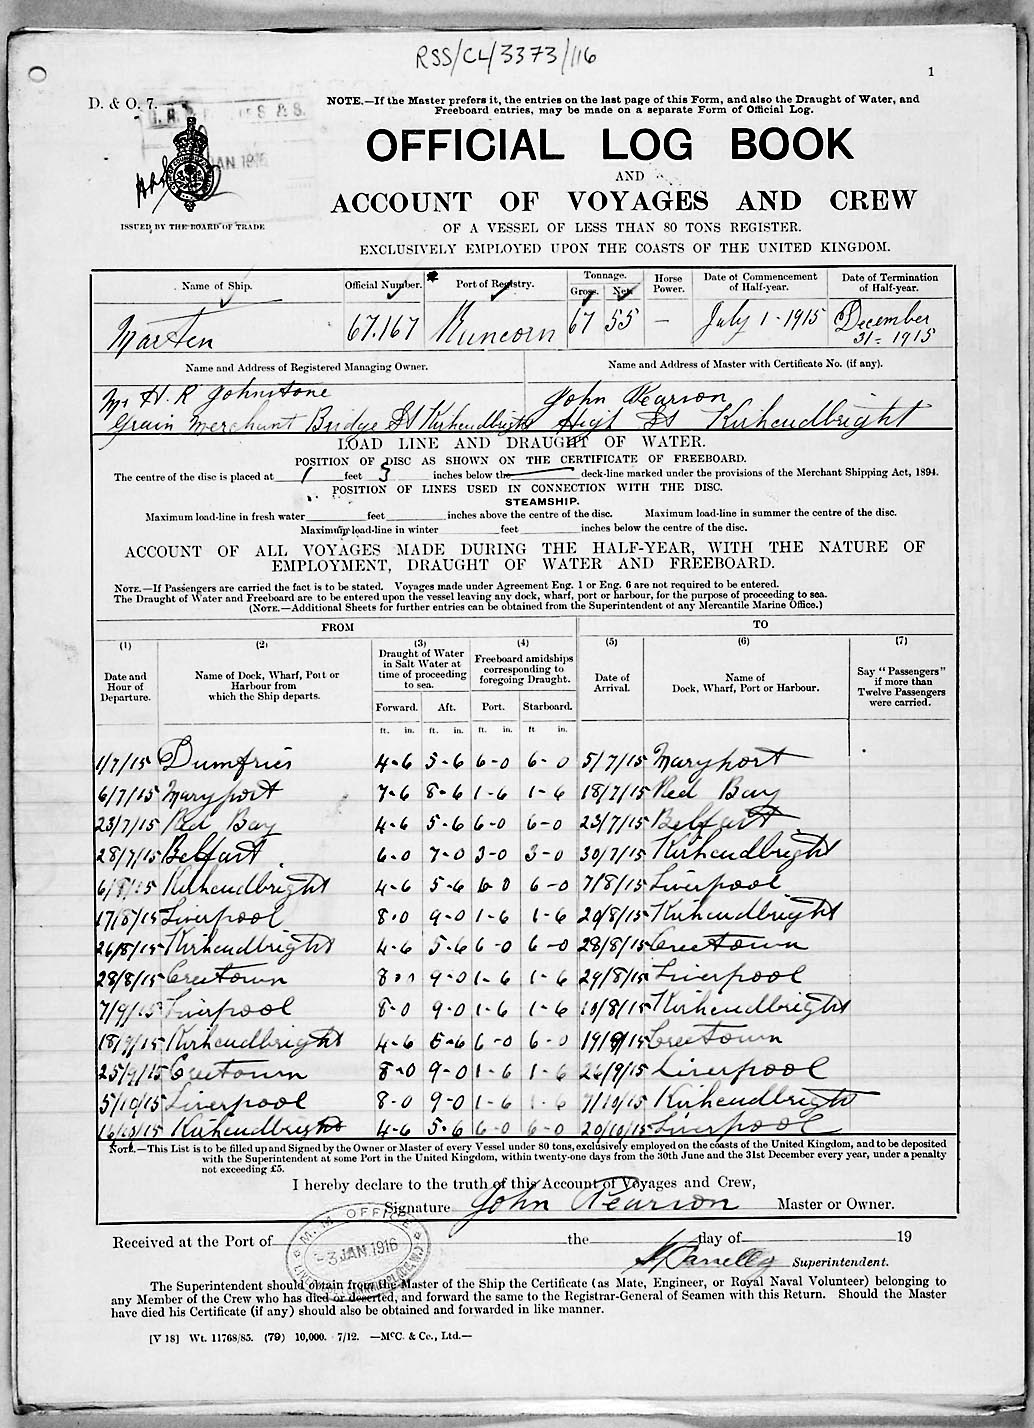 RSS/CL/3373/116
1
D. & O. 7.
NOTE.—If the Master prefers it, the entries on the last page of this Form, and also the Draught of Water, and
Freeboard entries, may be made on a separate Form of Official Log.
OFFICIAL LOG BOOK
AND
ACCOUNT OF VOYAGES AND CREW
ISSUED BY THE BOARD OF TRADE
OF A VESSEL OF LESS THAN 80 TONS REGISTER.
EXCLUSIVELY EMPLOYED UPON THE COASTS OF THE UNITED KINGDOM.
Name of Ship. Official Number. Port of Registry. Tonnage. Gross. Net. Horse Power. Date of Commencement of Half-year. Date of Termination of Half-year.
Marten 67.167 Runcorn 67 55 — July 1 - 1915 December 31 - 1915
Name and Address of Registered Managing Owner. Name and Address of Master with Certificate No. (if any).
Mr H. R Johnstone John Pearson
Grain Merchant Bridge St Kirkcudbright High St Kirkcudbright
LOAD LINE AND DRAUGHT OF WATER.
POSITION OF DISC AS SHOWN ON THE CERTIFICATE OF FREEBOARD.
The centre of the disc is placed at 1 feet 3 inches below the deck-line marked under the provisions of the Merchant Shipping Act, 1894.
POSITION OF LINES USED IN CONNECTION WITH THE DISC.
STEAMSHIP.
Maximum load-line in fresh water feet inches above the centre of the disc. Maximum load-line in summer the centre of the disc.
Maximum load-line in winter feet inches below the centre of the disc.
ACCOUNT OF ALL VOYAGES MADE DURING THE HALF-YEAR, WITH THE NATURE OF
EMPLOYMENT, DRAUGHT OF WATER AND FREEBOARD.
NOTE.—If Passengers are carried the fact is to be stated. Voyages made under Agreement Eng. 1 or Eng. 6 are not required to be entered.
The Draught of Water and Freeboard are to be entered upon the vessel leaving any dock, wharf, port or harbour, for the purpose of proceeding to sea.
(NOTE.—Additional Sheets for further entries can be obtained from the Superintendent of any Mercantile Marine Office.)
FROM TO
(1) (2) (3) (4) (5) (6) (7)
Date and Hour of Departure. Name of Dock, Wharf, Port or Harbour from which the Ship departs. Draught of Water in Salt Water at time of proceeding to sea. Freeboard amidships corresponding to foregoing Draught. Date of Arrival. Name of Dock, Wharf, Port or Harbour. Say "Passengers" if more than Twelve Passengers were carried.
Forward. Aft. Port. Starboard.
ft. in. ft. in. ft. in. ft in.
1/7/15 Dumfries 4-6 5-6 6-0 6-0 5/7/15 Maryport
6/7/15 Maryport 7-6 8-6 1-6 1-6 18/7/15 Red Bay
23/7/15 Red Bay 4-6 5-6 6-0 6-0 23/7/15 Belfast
28/7/15 Belfast 6-0 7-0 3-0 3-0 30/7/15 Kirkcudbright
6/8/15 Kirkcudbright 4-6 5-6 6 0 6-0 7/8/15 Liverpool
17/8/15 Liverpool 8-0 9-0 1-6 1-6 20/8/15 Kirkcudbright
26/8/15 Kirkcudbright 4-6 5-6 6-0 6-0 28/8/15 Creetown
28/8/15 Creetown 8-0 9-0 1-6 1-6 29/8/15 Liverpool
7/9/15 Liverpool 8-0 9-0 1-6 1-6 10/8/15 Kirkcudbright
18/9/15 Kirkcudbright 4-6 5-6 6-0 6-0 19/9/15 Creetown
25/9/15 Creetown 8-0 9-0 1-6 1-6 26/9/15 Liverpool
5/10/15 Liverpool 8-0 9-0 1-6 1-6 7/10/15 Kirkcudbright
16/10/15 Kirkcudbright 4-6 5-6 6-0 6-0 20/10/15 Liverpool
NOTE.—This List is to be filled up and Signed by the Owner or Master of every Vessel under 80 tons, exclusively employed on the coasts of the United Kingdom, and to be deposited
with the Superintendent at some Port in the United Kingdom, within twenty-one days from the 30th June and the 31st December every year, under a penalty
not exceeding £5.
I hereby declare to the truth of this Account of Voyages and Crew,
Signature John Pearson Master or Owner.
M. M. OFFICE
-3 JAN. 1916
Received at the Port of the day of 19
Superintendent.
The Superintendent should obtain from the Master of the Ship the Certificate (as Mate, Engineer, or Royal Naval Volunteer) belonging to
any Member of the Crew who has died or deserted, and forward the same to the Registrar-General of Seamen with this Return. Should the Master
have died his Certificate (if any) should also be obtained and forwarded in like manner.
[V 18] Wt. 11768/85. (79) 10,000. 7/12. —McC. & Co., Ltd.—